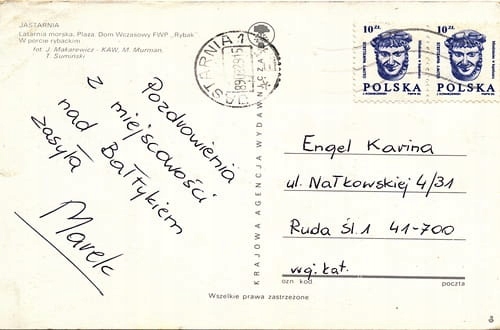 JASTARNIA
Latarnia morska. Plaza. Dom Wczasowy FWP „Rybak”
W porcie rybackim
fot. J. Makarewicz - KAW, M. Murman,
T. Sumiński
JASTARNIA 1
10 ZŁ
POLSKA
10 ZŁ
POLSKA
Pozdrowienia
z miejscowości
nad Bałtykiem
zasyła
Marek
KRAJOWA AGENCJA WYDAWNICZA
Engel Karina
ul. Nałkowskiej 4/31
Ruda Śl. 1 41-700
woj. kat.
ozn kod
poczta
Wszelkie prawa zastrzeżone